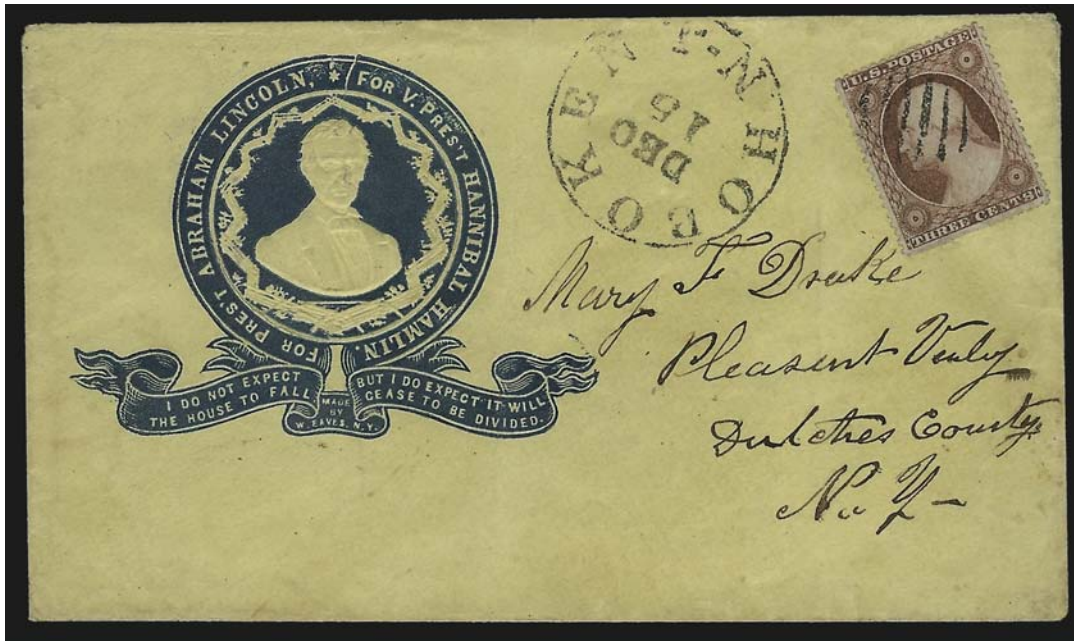 FOR PRES'T ABRAHAM LINCOLN, * FOR V. PRES'T HANNIBAL HAMLIN.
I DO NOT EXPECT
THE HOUSE TO FALL
MADE
BY
W. EAVES, N.Y.
BUT I DO EXPECT IT WILL
CEASE TO BE DIVIDED.
HOBOKEN N.J.
DEC
15
U.S. POSTAGE
THREE CENTS
Mary F Drake
Pleasent Vally
Dutches County
N. Y-